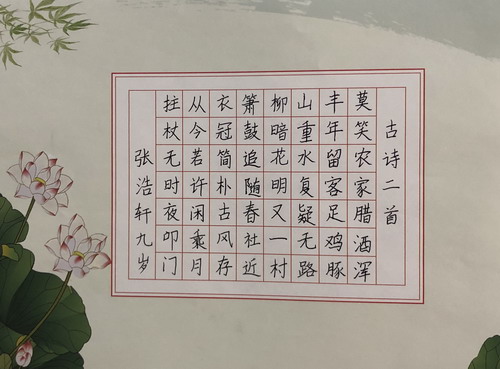 古诗二首
莫笑农家腊酒浑
丰年留客足鸡豚
山重水复疑无路
柳暗花明又一村
箫鼓追随春社近
衣冠简朴古风存
从今若许闲乘月
拄杖无时夜叩门
张浩轩九岁